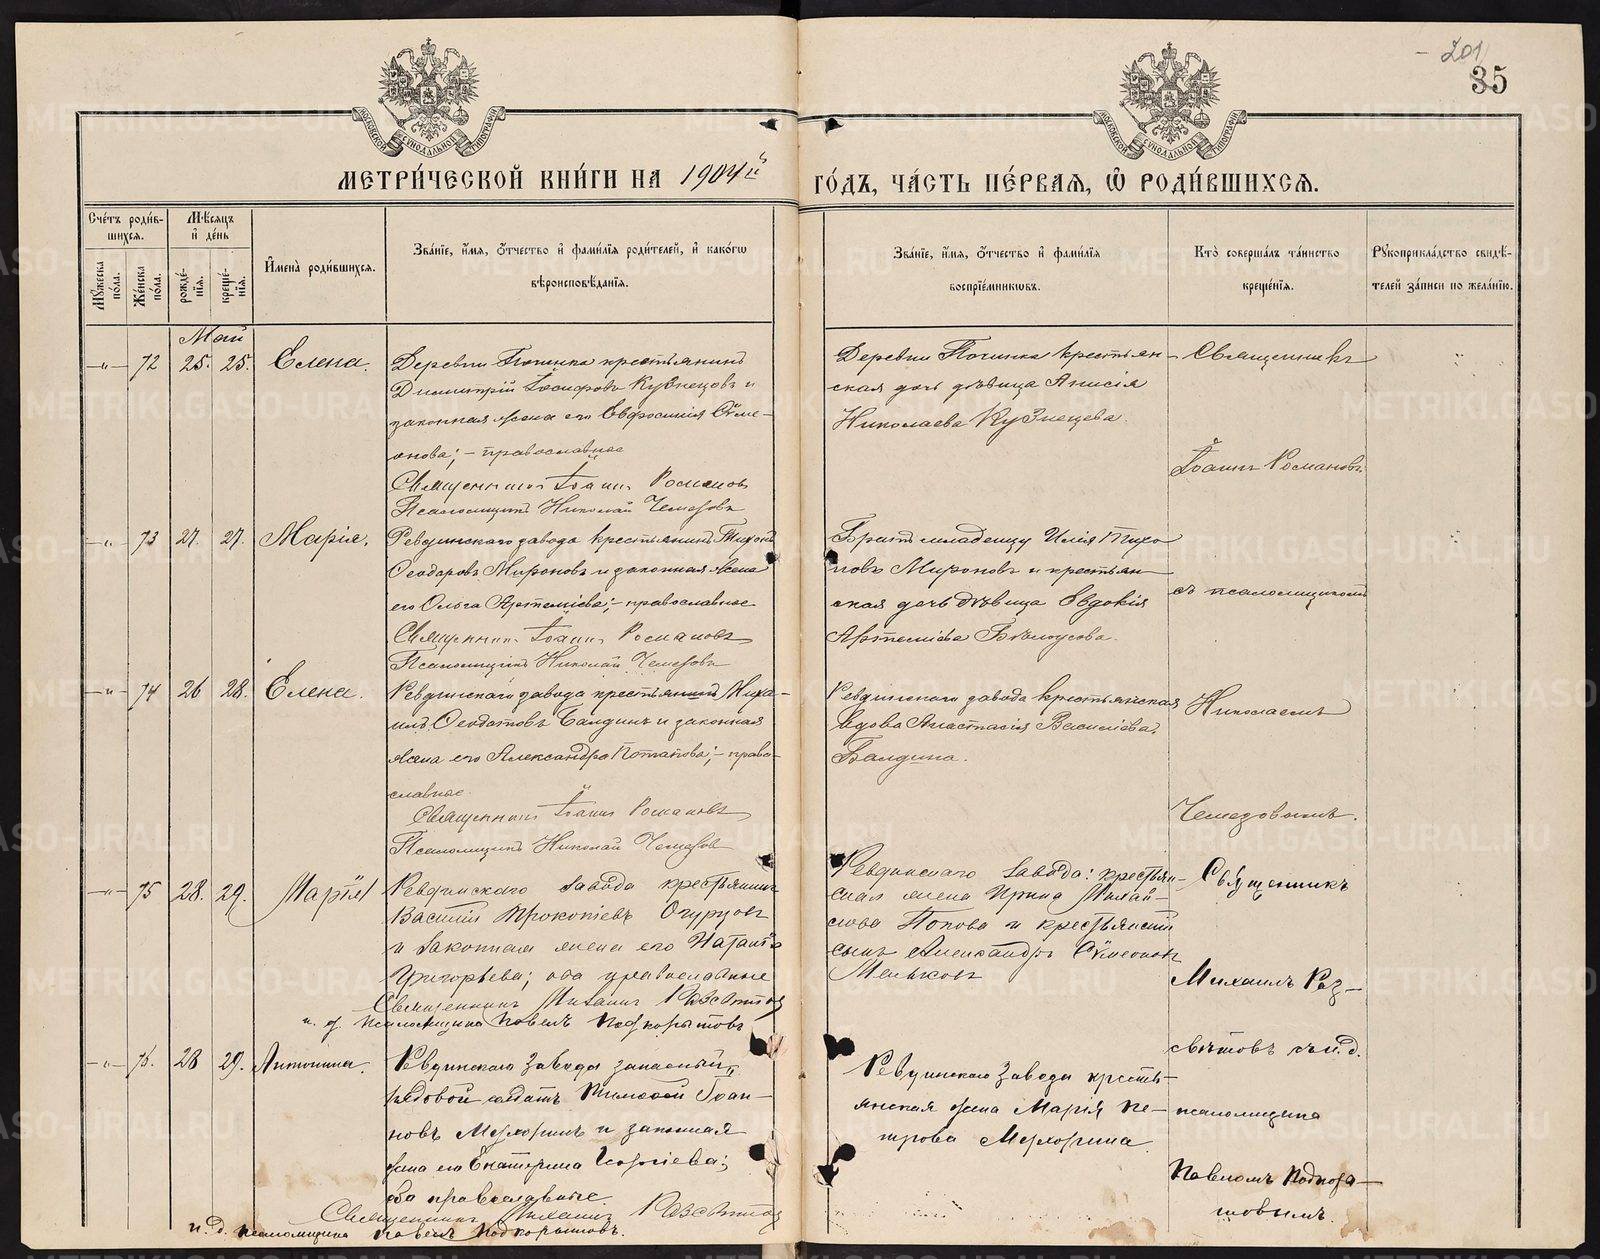 201
35
МЕТРИ́ЧЕСКОЙ КНИ́ГИ НА 1904й
ГО́ДЪ, ЧА́СТЬ ПЕ́РВАѦ, Ѡ РОДИ́ВШИХСѦ.
Сче́тъ роди́в-
шихсѧ.
Мѣ́сѧцъ
и҆ де́нь
Мꙋ́жеска по́ла.
Же́нска по́ла.
рожде́-
нїѧ.
креще́-
нїѧ.
И҆мена̀ роди́вшихсѧ.
Зва́нїе, и҆́мѧ, о҆́тчество и҆ фами́лїѧ роди́телей, и҆ како́гѡ
вѣроисповѣ́данїѧ.
Зва́нїе, и҆́мѧ, о҆́тчество и҆ фами́лїѧ
воспрїе́мникѡвъ.
Кто̀ соверша́лъ та́инство
креще́нїѧ.
Рꙋкоприкла́дство свидѣ́-
телей за́писи по жела́нїю.
Май
-"- 72 25. 25. Елена.
Деревни Починка крестьянинъ
Димитрій Іосифовъ Кузнецовъ и
законная жена его Евфросинія Сѵме-
онова; - православное
Священникъ Іоаннъ Романовъ
Псаломщикъ Николай Чемезовъ
Деревни Починка крестьян-
ская дочь дѣвица Анисія
Николаева Кузнецева.
Священникъ
Іоаннъ Романовъ
-"- 73 27. 27. Марія.
Ревдинскаго завода крестьянинъ Тихонъ
Ѳеодоровъ Мироновъ и законная жена
его Ольга Артеміева; - православное
Священникъ Іоаннъ Романовъ
Псаломщикъ Николай Чемезовъ
Братъ младенцу Илія Тихо
новъ Мироновъ и крестьян-
ская дочь дѣвица Евдокія
Артеміева Бѣлоусова.
съ псаломщикомъ
-"- 74 26 28. Елена.
Ревдинскаго завода крестьянинъ Миха-
илъ Ѳеодотовъ Балдинъ и законная
жена его Александра Потапова; - право-
славное.
Священникъ Іоаннъ Романовъ
Псаломщикъ Николай Чемезовъ
Ревдинскаго завода крестьянская
вдова Анастасія Василіева
Балдина.
Николаемъ
Чемезовымъ.
-"- 75 28. 29. Марія
Ревдинскаго завода крестьянинъ
Василій Прокопіевъ
и законная жена его Наталія
Григорьева; оба православные
Священникъ Михаилъ Разсвѣтовъ
и. д. псаломщика Павелъ Подкорытовъ
Ревдинскаго завода: крестьян-
ская жена Ирина Михай-
лова Попова и крестьянскій
сынъ Александръ Сѵмеоновъ
Меньковъ
Священникъ
Михаилъ Раз-
свѣтовъ съ и. д.
-"- 76. 28 29. Антонина.
Ревдинскаго завода запасный
рядовой солдатъ Тимоѳей Іоан-
новъ и законная
жена его Екатерина Георгіева;
оба православные
Священникъ Михаилъ Разсвѣтовъ
и. д. псаломщика Павелъ Подкорытовъ.
Ревдинскаго завода кресть-
янская жена Марія Пе-
трова
псаломщика
Павломъ Подкоры-
товымъ.